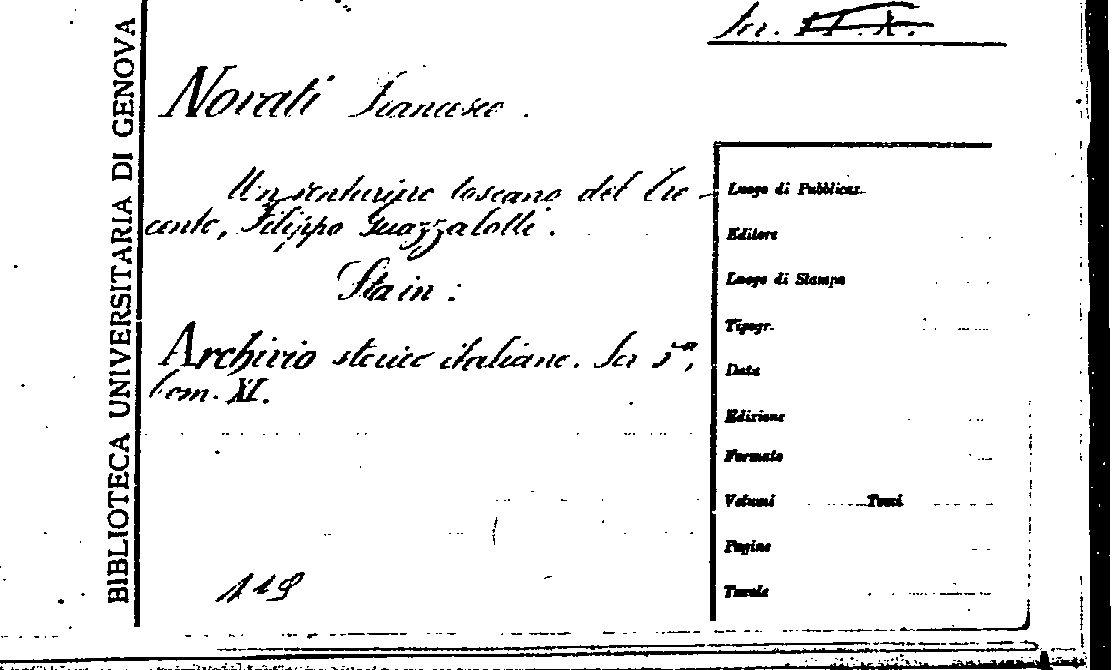 BIBLIOTECA UNIVERSITARIA DI GENOVA
Novati Francesco.
Un venturiere toscano del Tre-
cento, Filippo Guazzalotti.
Sta in:
Archivio storico italiano. Ser 5ª,
tom. XI.
119
Luogo di Pubblicaz.
Editore
Luogo di Stampa
Tipogr.
Data
Edizione
Formato
Volumi Tomi
Pagine
Tavole